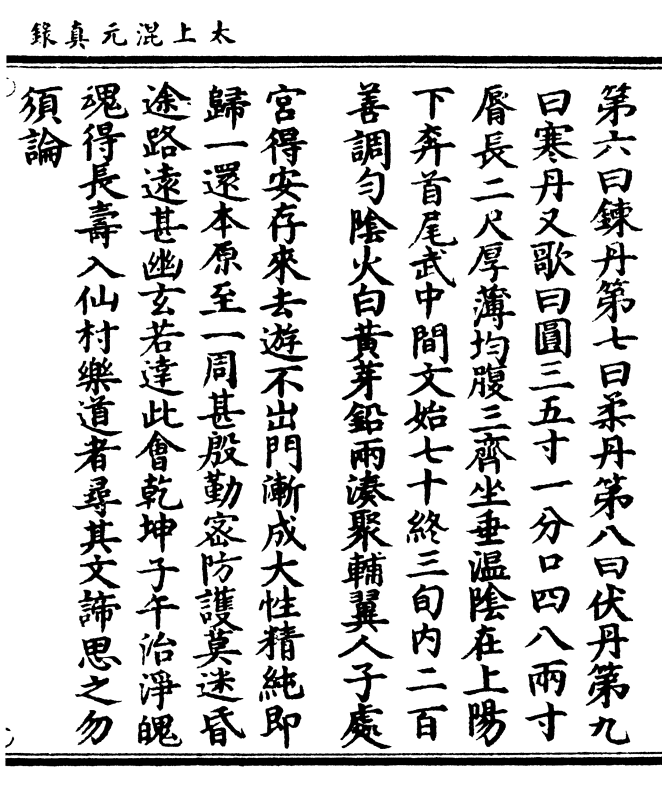 太上混元真録
第六曰鍊丹第七曰柔丹第八曰伏丹第九
曰寒丹又歌曰圓三五寸一分口四八兩寸
脣長二尺厚薄均腹三齊坐垂温陰在上陽
下奔首尾武中間文始七十終三旬内二百
善調勻陰火白黄芽鉛兩湊聚輔翼人子處
宮得安存來去遊不出門漸成大性精純即
歸一還本原至一周甚殷勤密防護莫迷昏
途路遠甚幽玄若達此會乾坤子午治淨魄
魂得長壽入仙村樂道者尋其文諦思之勿
須論